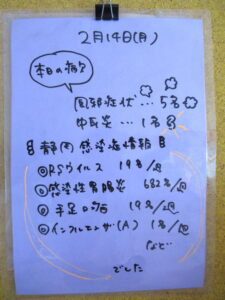 2月14日(月)
本日の病欠
風邪症状…5名
中耳炎…1名
静岡感染症情報
◎RSウイルス 19名/週
◎感染性胃腸炎 682名/週
◎手足口病 19名/週
◎インフルエンザ(A) 1名/週
など…
でした